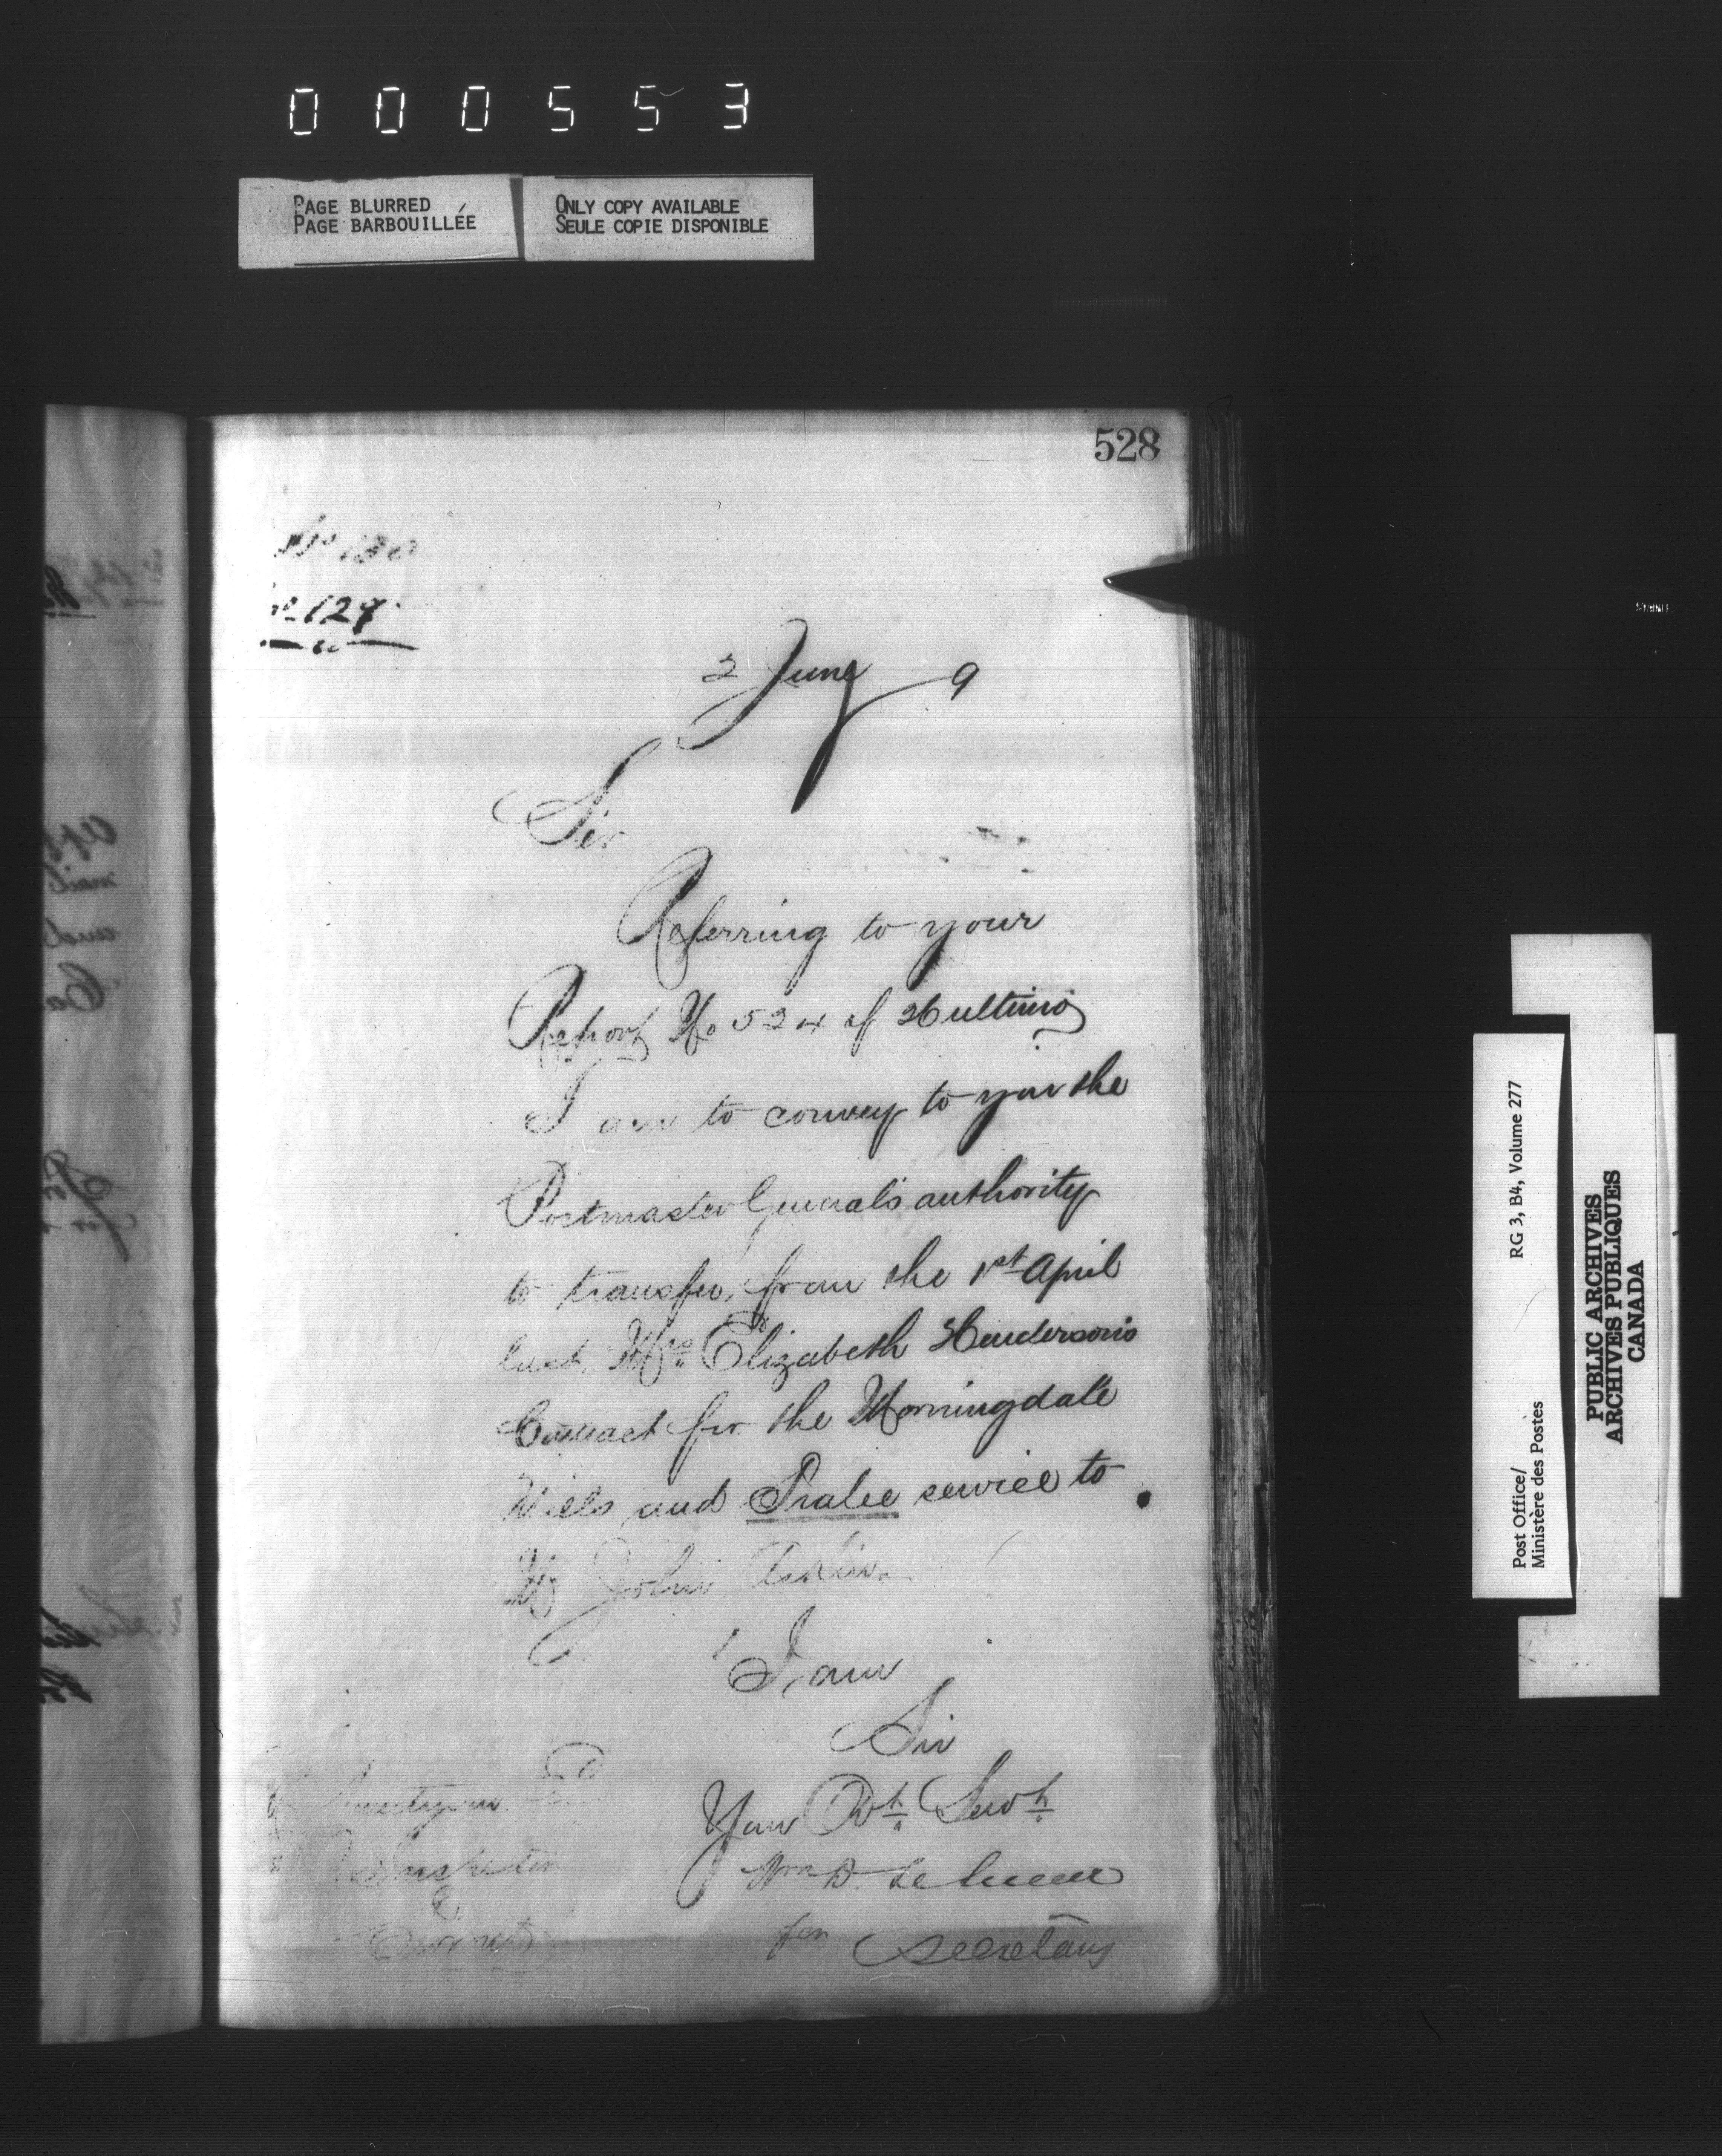 000553
PAGE BLURRED
PAGE BARBOUILLÉE
ONLY COPY AVAILABLE
SEULE COPIE DISPONIBLE
528
No 130
No 127
2 June 9
Sir
Referring to your
Report No 524 of 26 ultimo
I am to convey to you the
Postmaster General's authority
to transfer, from the 1st April
last, Mrs Elizabeth Henderson's
Contract for the Morningdale
Mills and Pralee service to
Mr John
I am
Sir
Your Obt Servt
Wm D. Le Sueur
for Secretary
Inspector
RG 3, B4, Volume 277
Post Office/
Ministère des Postes
PUBLIC ARCHIVES
ARCHIVES PUBLIQUES
CANADA